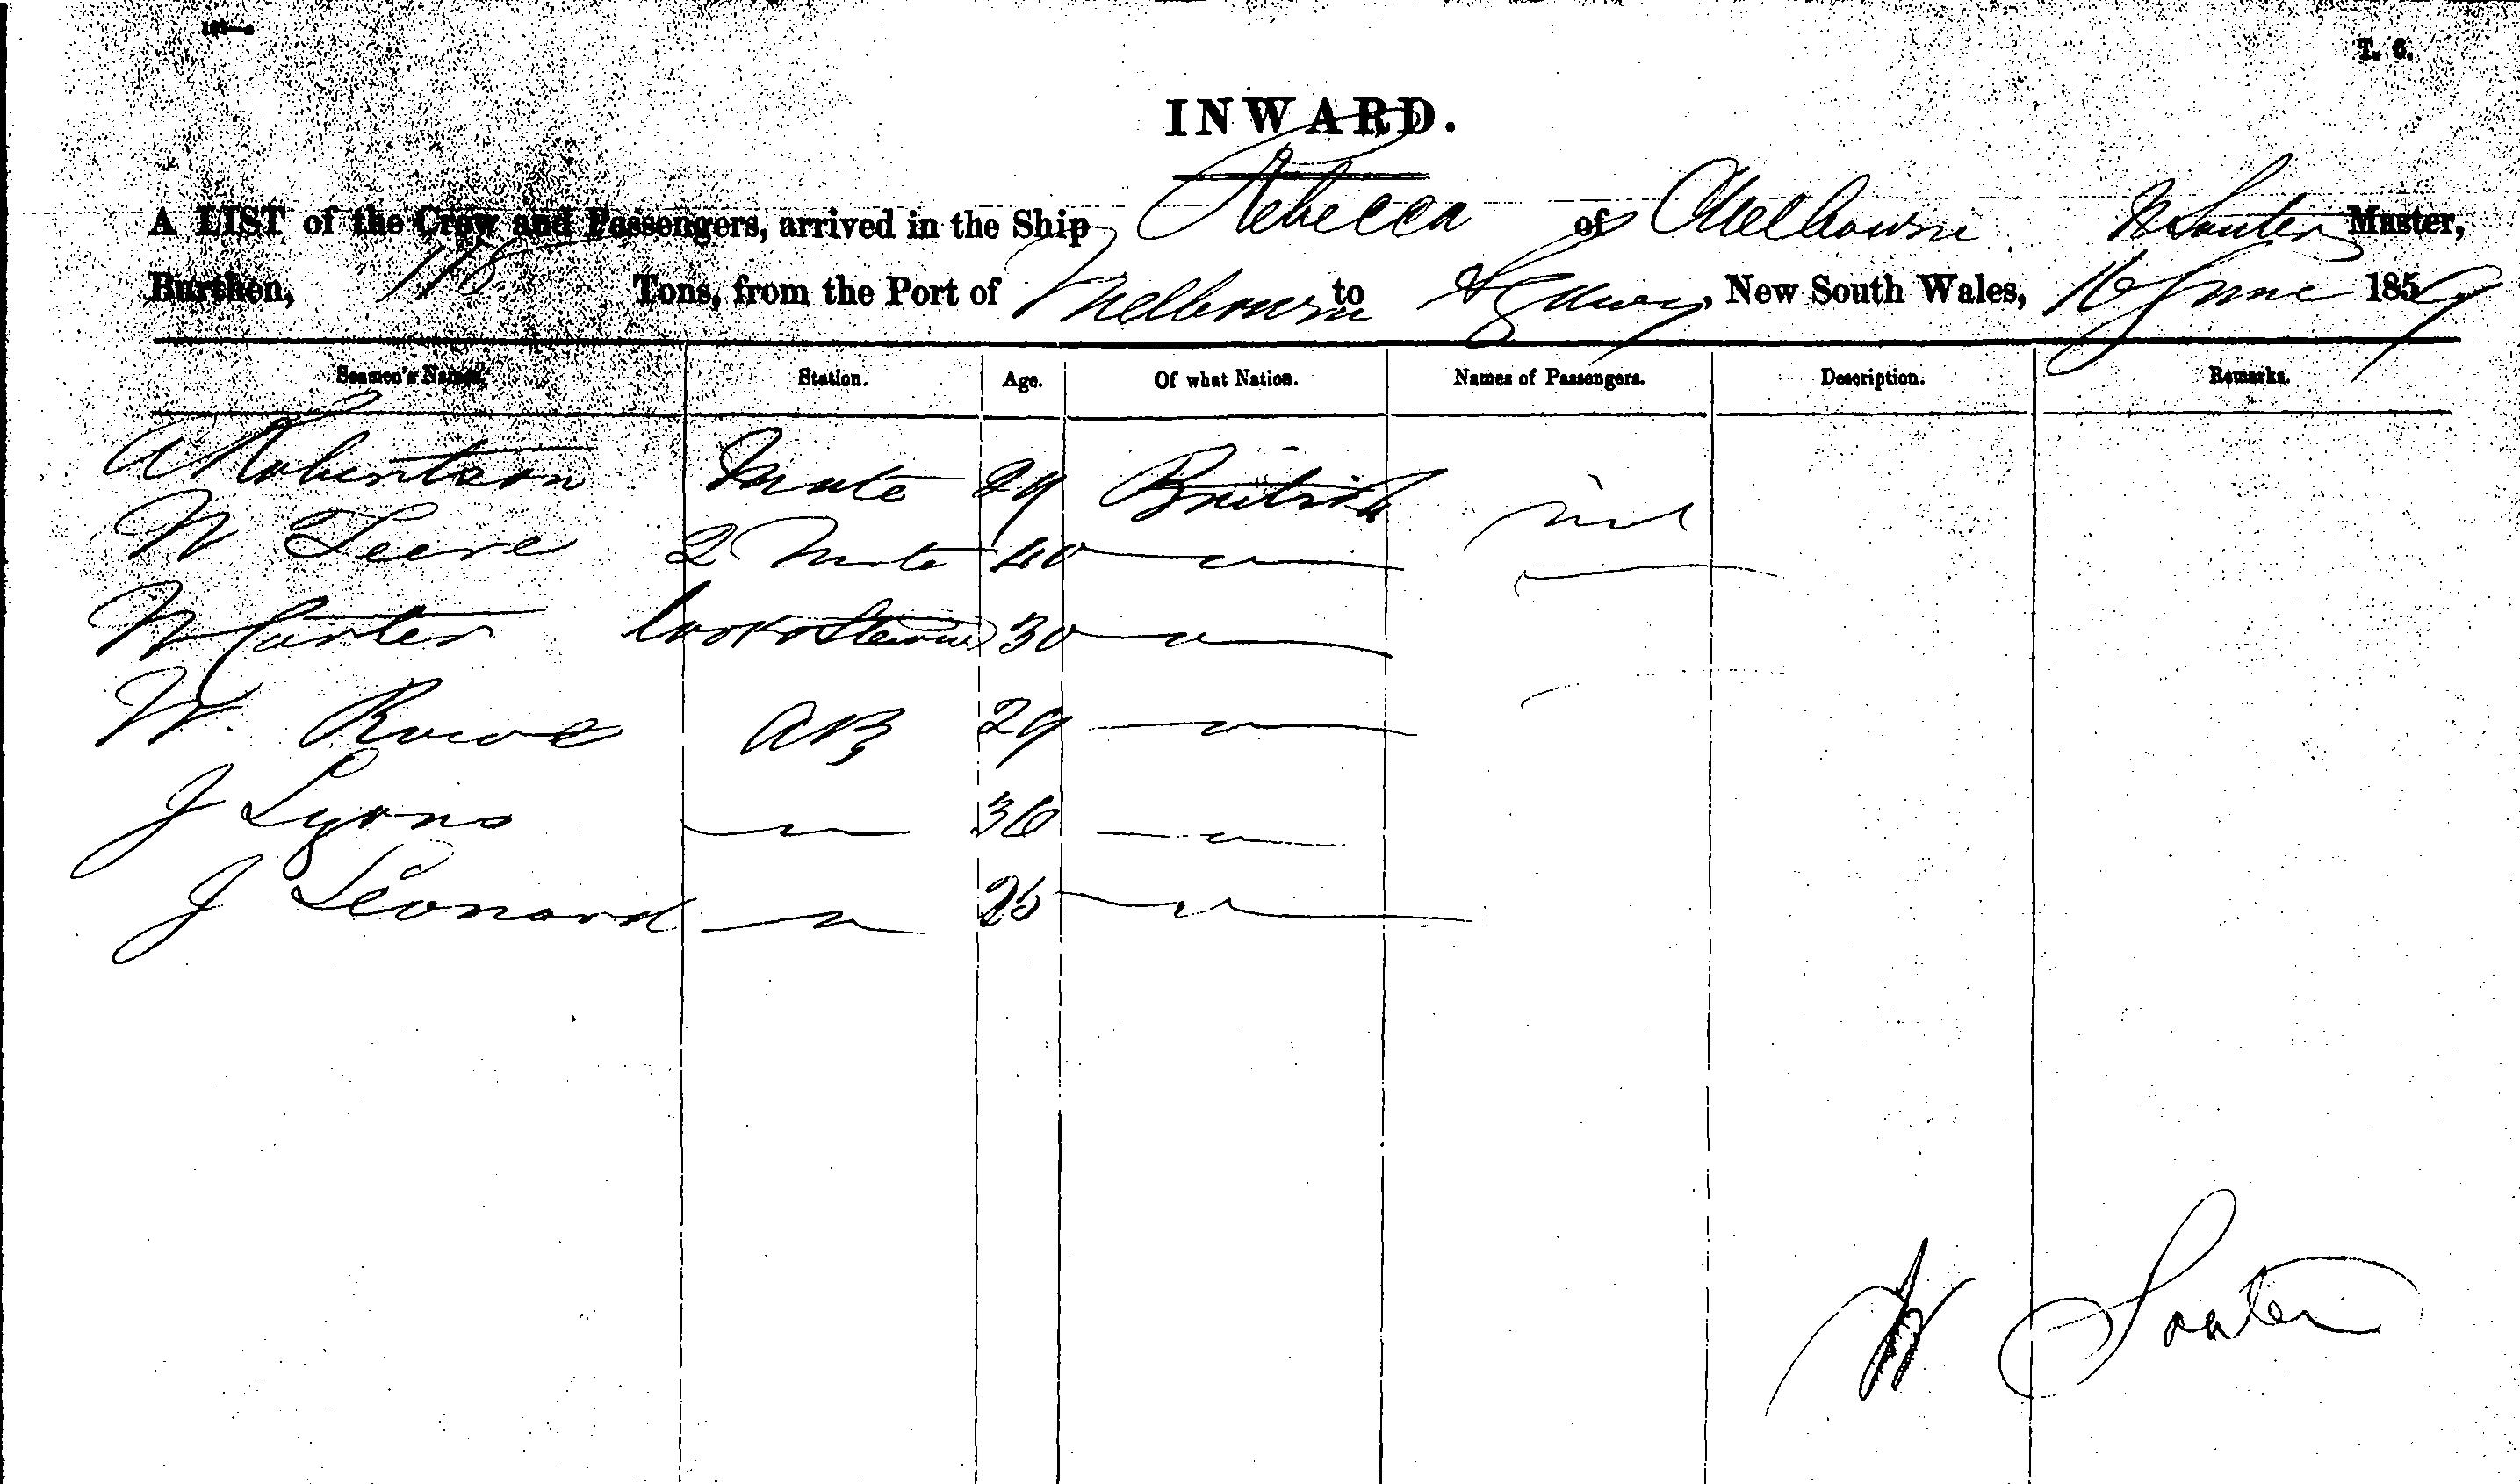 T. 6.
INWARD.
A LIST of the Crew and Passengers, arrived in the Ship Rebecca of Melbourne W Souter Master,
Burthen, 118 Tons, from the Port of Melbourne to Sydney, New South Wales, 16 June 1859
Seamen's Names. Station. Age. Of what Nation. Names of Passengers. Description. Remarks.
A Robertson Mate 29 British nil
W 2 Mate 40 "
W Carter Cook & Steward 30 "
W. Rowe AB 29 "
J Lyons " 36 "
J Leonard " 25 "
W Souter